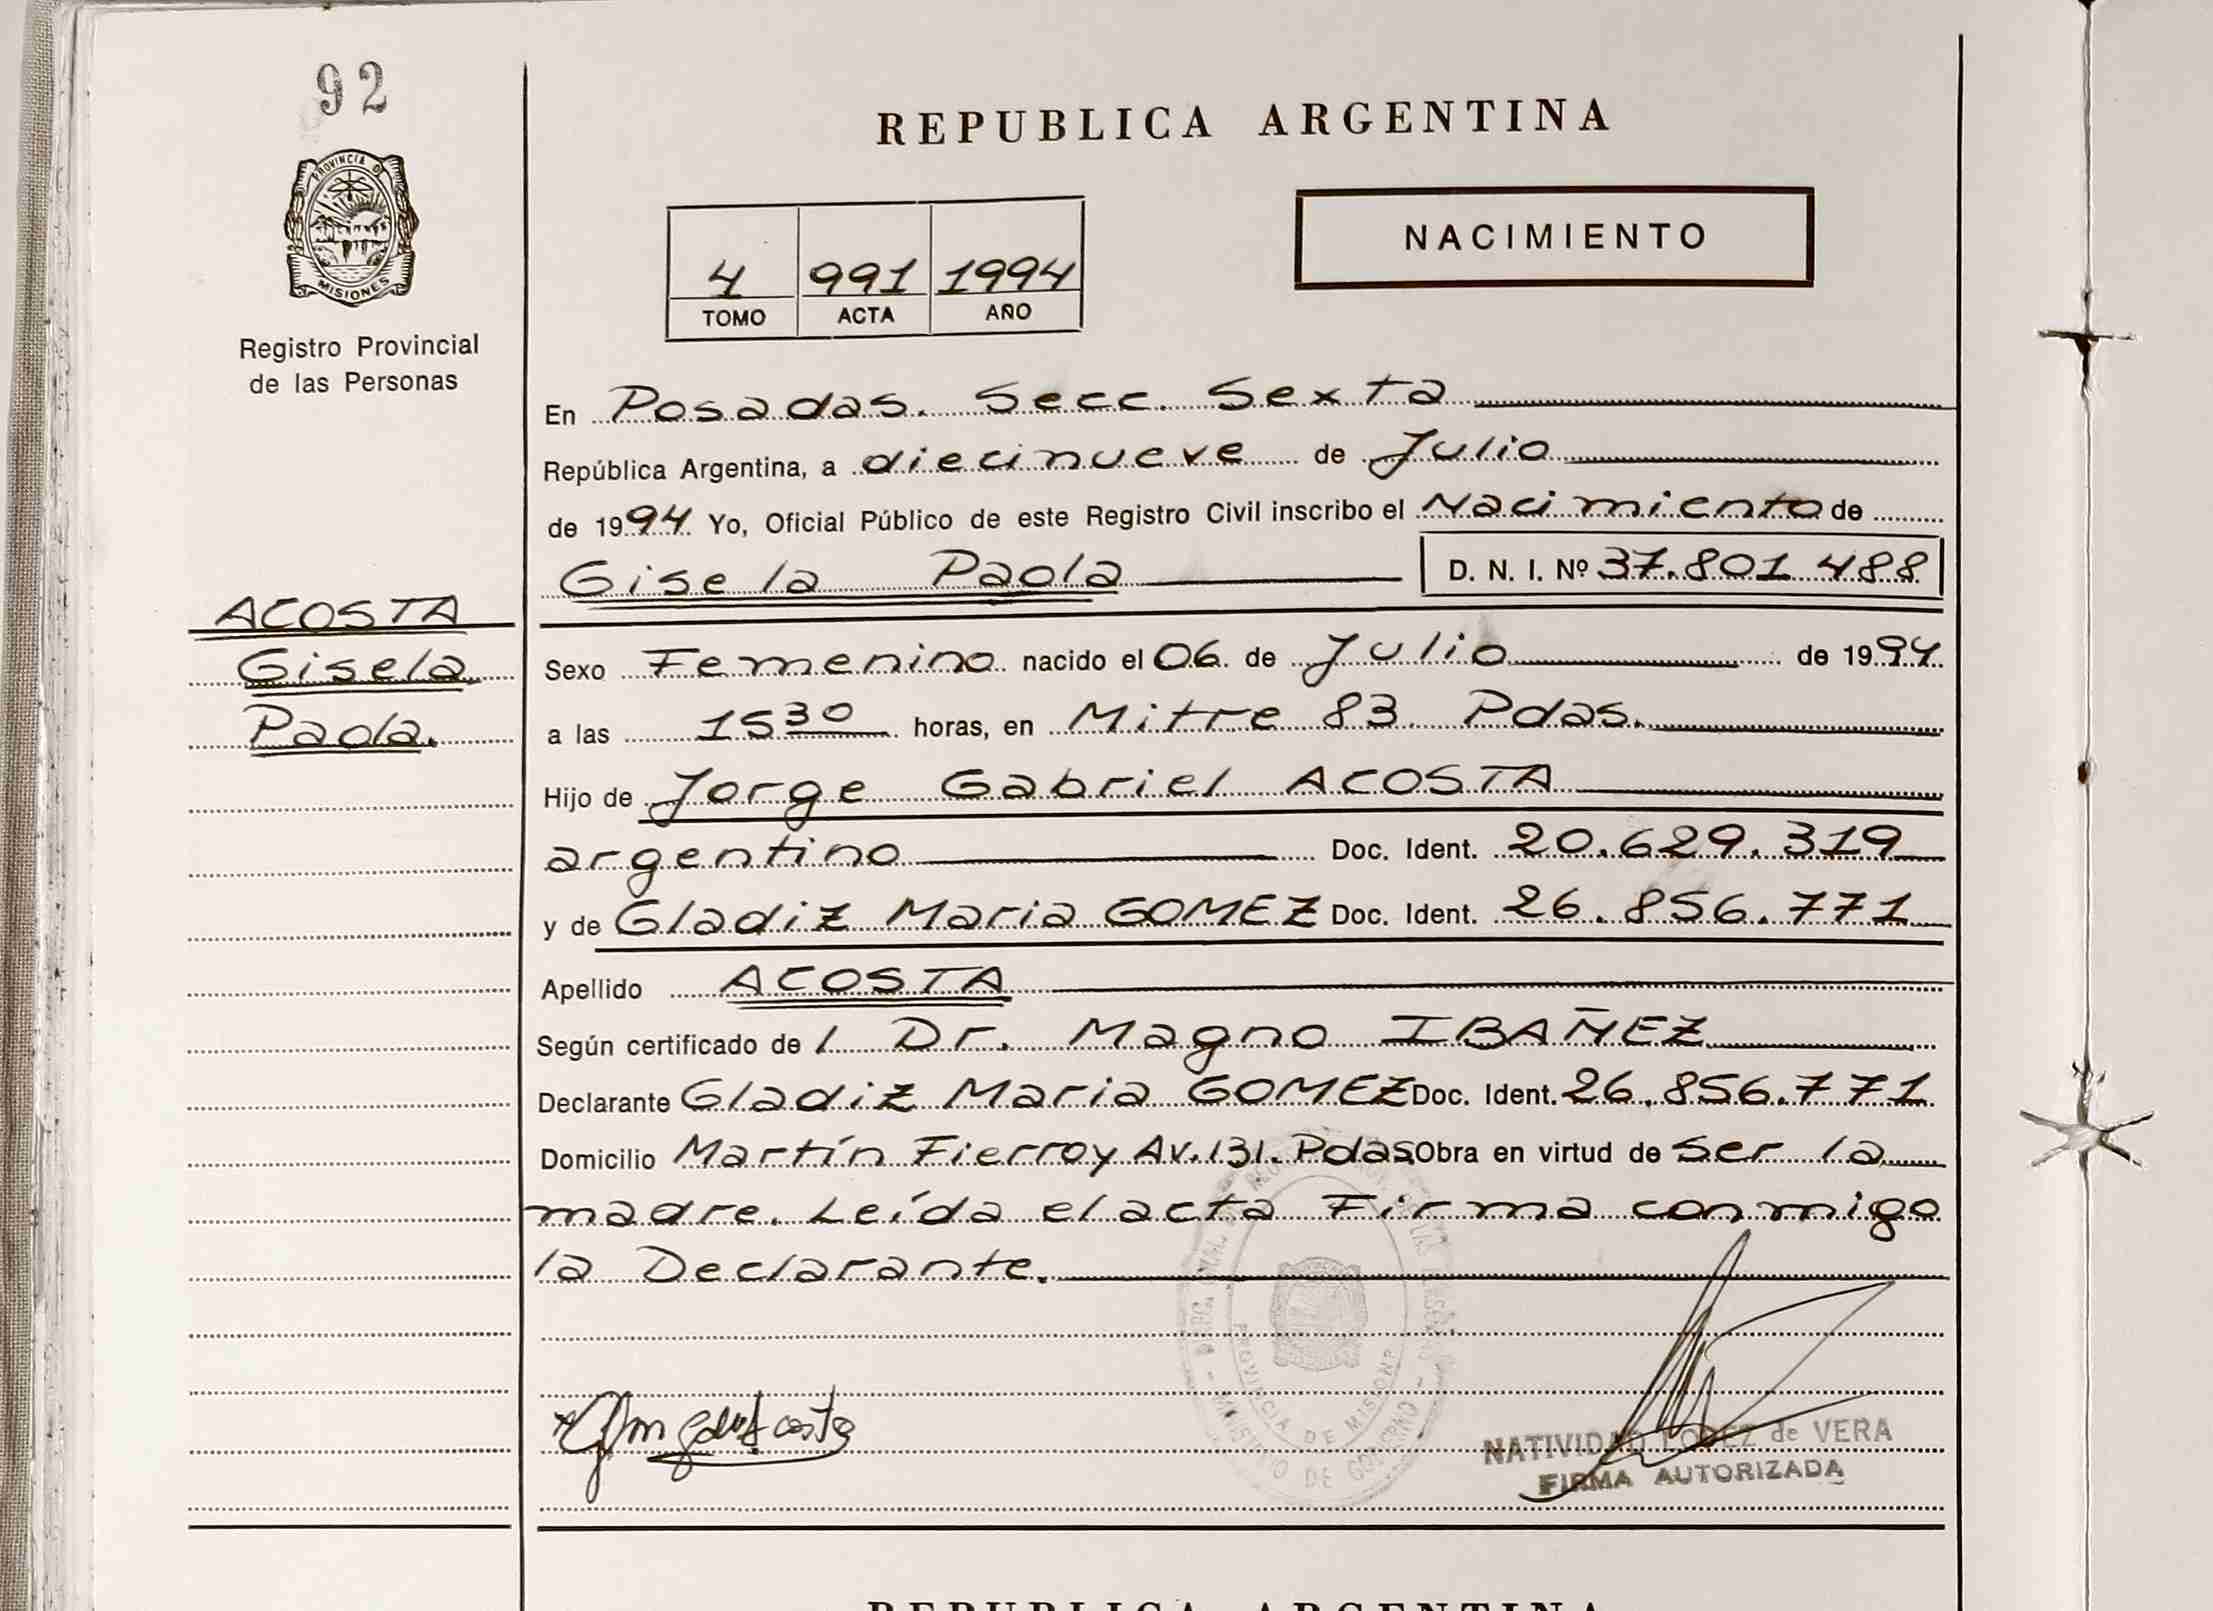 92
REPUBLICA ARGENTINA
PROVINCIA D
MISIONES
NACIMIENTO
4 991 1994
TOMO ACTA AÑO
Registro Provincial
de las Personas
En Posadas. Secc. Sexta
República Argentina, a diecinueve de Julio
de 1994 Yo, Oficial Público de este Registro Civil inscribo el Nacimiento de
Gisela Paola D. N. I. Nº 37.801 488
ACOSTA
Gisela
Paola.
Sexo Femenino nacido el 06 de Julio de 1994
a las 15 30 horas, en Mitre 83 Pdas.
Hijo de Jorge Gabriel ACOSTA
argentino Doc. Ident. 20.629.319
y de Gladiz Maria GOMEZ Doc. Ident. 26.856.771
Apellido ACOSTA
Según certificado de l Dr. Magno IBAÑEZ
Declarante Gladiz Maria GOMEZ Doc. Ident. 26.856.771
Domicilio Martín Fierro y Av. 131. Pdas Obra en virtud de ser la
madre. Leída el acta Firma conmigo
la Declarante.
PROVINCIA DE MISIONES
MINISTERIO DE GOBIERNO
NATIVIDAD LOPEZ de VERA
FIRMA AUTORIZADA
REPUBLICA ARGENTINA